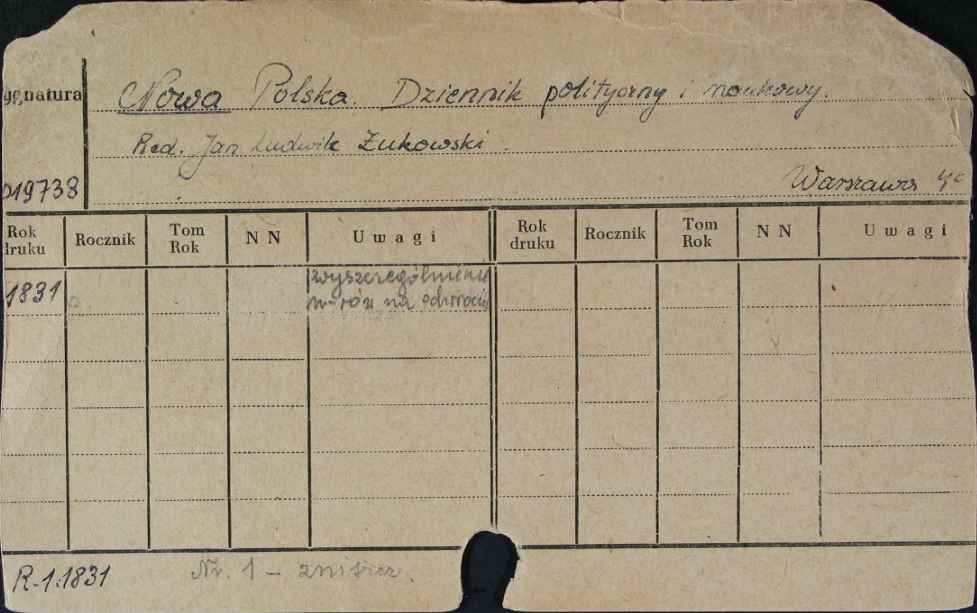 ygnatura Nowa Polska. Dziennik polityczny i naukowy.
Red. Jan Ludwik Żukowski.
019738 Warszawa 4°
Rok druku Rocznik Tom Rok NN Uwagi Rok druku Rocznik Tom Rok NN Uwagi
1831 wyszczególnienie
n-rów na odwrocie
R-1:1831 Nr. 1 - zniszcz.